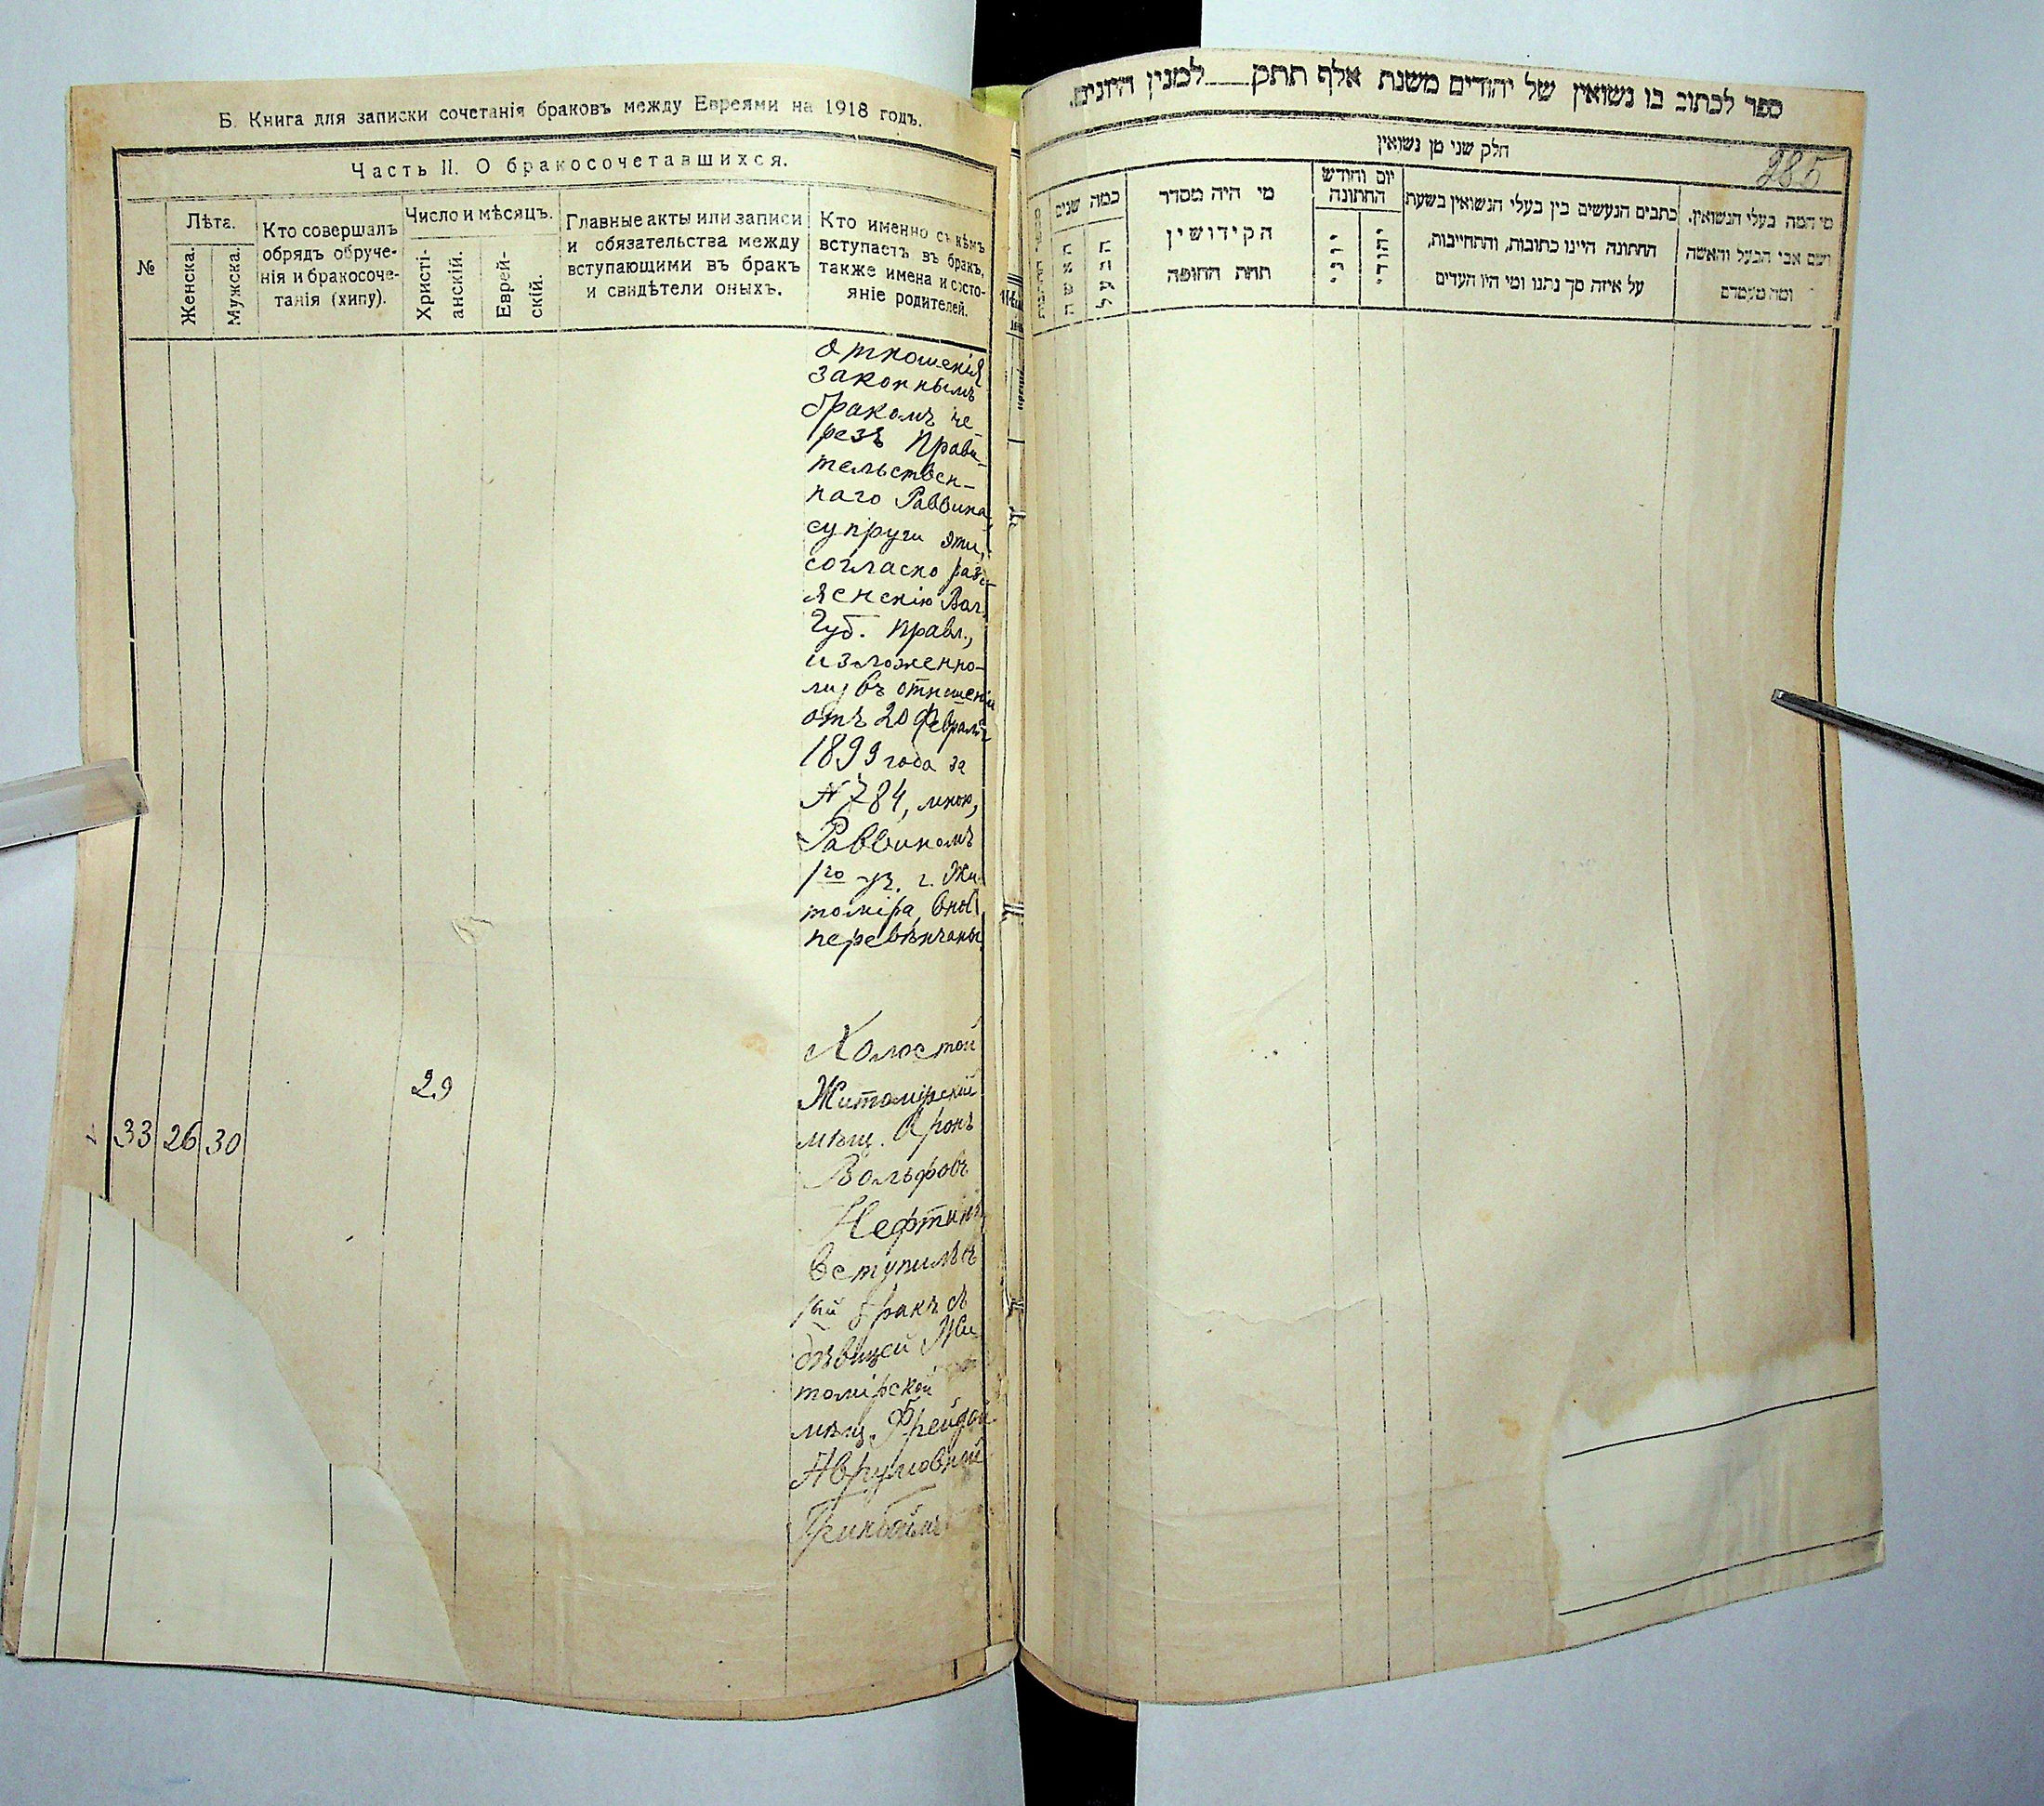 Б. Книга для записки сочетанія браковъ между Евреями на 1918 годъ.
Часть II. О бракосочетавшихся.
№
Лѣта.
Женска.
Мужска.
Кто совершалъ
обрядъ обруче-
нія и бракосоче-
танія (хипу).
Число и мѣсяцъ.
Христі-
анскій.
Еврей-
скій.
Главные акты или записи
и обязательства между
вступающими въ бракъ
и свидѣтели оныхъ.
Кто именно съ кѣмъ
вступаетъ въ бракъ,
также имена и состо-
яніе родителей.
отношенія
законнымъ
бракомъ че-
резъ Прави-
тельствен-
наго Раввина,
супруги эти,
согласно разъ-
ясненію Вол.
Губ. Правл.,
изложенно-
му въ отношеніи
отъ 20 Февраля
1899 года за
№ 784, мною,
Раввиномъ
1го уч. г. Жи-
томіра, вновь
перевѣнчаны
33 26 30
29
Холостой
Житомірскій
мѣщ. Аронъ
Вольфовъ
Нефтинъ
вступилъ въ
1ый бракъ съ
дѣвицей Жи-
томірской
мѣщ. Фрейдой
Аврумовной
Гринбаймъ
ספר לכתוב בו נשואין של יהודים משנת אלף תתק למנין היונים.
285
חלק שני מן נשואין
מי המה בעלי הנשואין,
ושם אבי הבעל והאשה
ומה מעמדם
כתבים הנעשים בין בעלי הנשואין בשעת
החתונה היינו כתובות, והתחייבות,
על איזה סך נתנו ומי היו העדים
יום וחודש
החתונה
יהודי
יוני
מי היה מסדר
הקידושין
תחת החופה
כמה שנים
הבעל
האשה